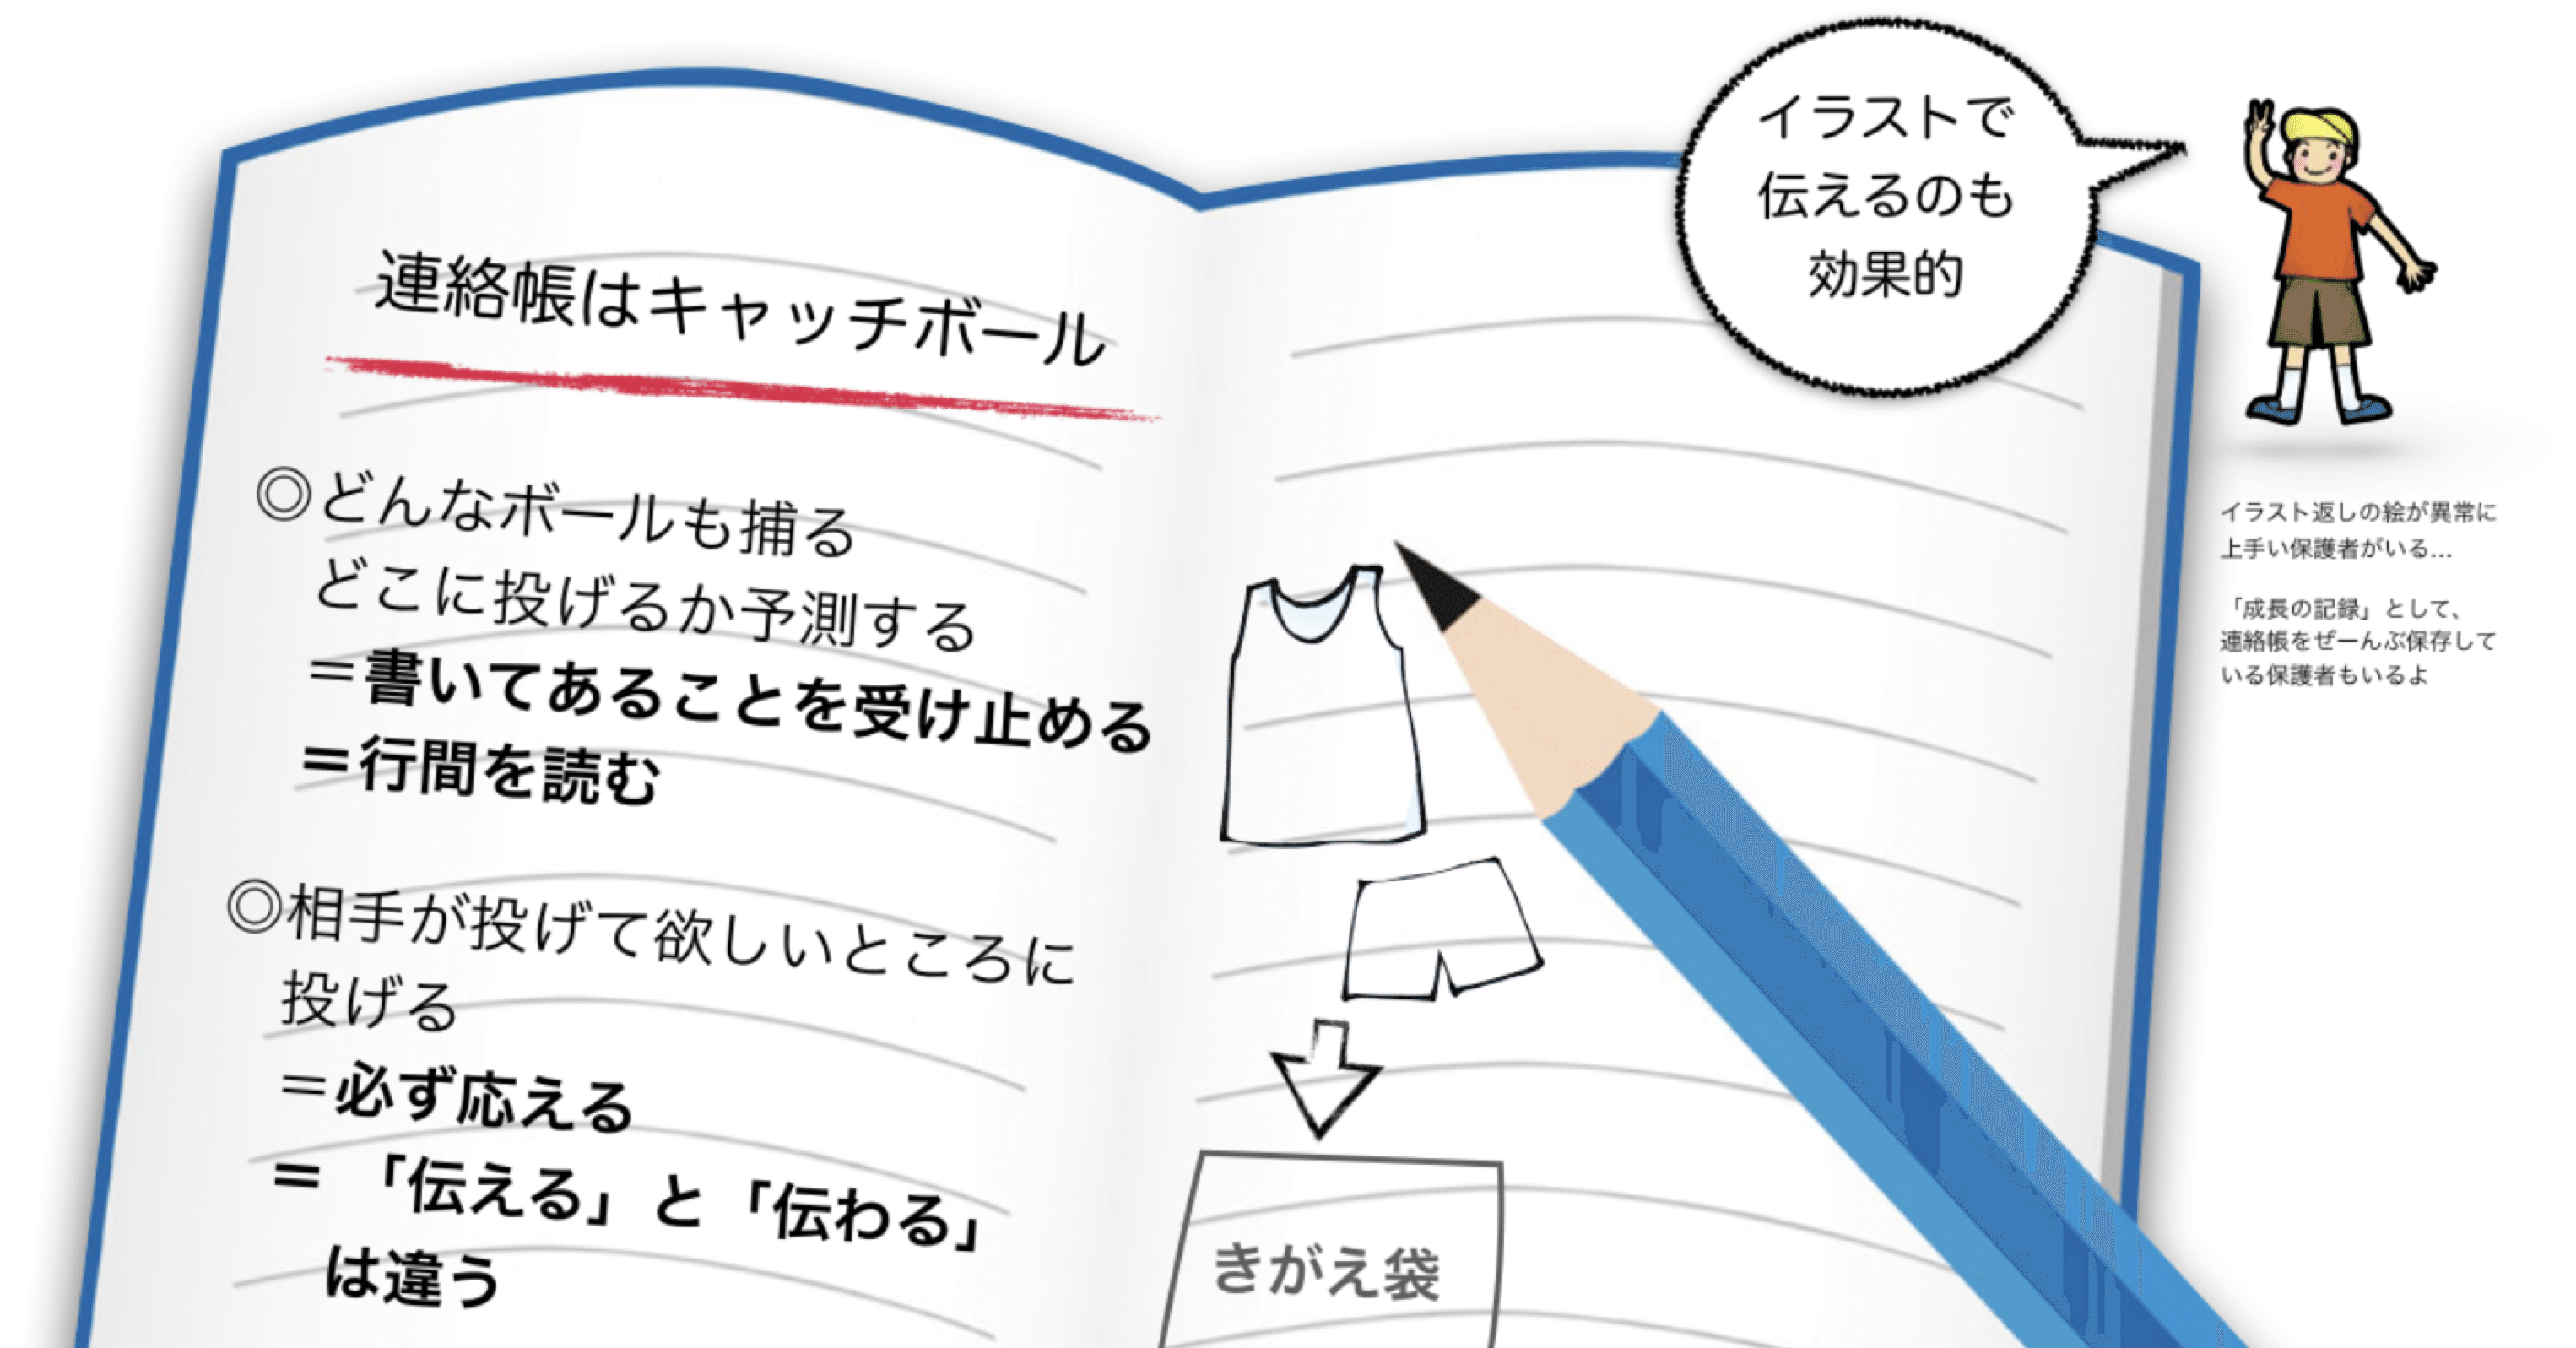 連絡帳はキャッチボール
◎どんなボールも捕る
どこに投げるか予測する
＝書いてあることを受け止める
＝行間を読む
◎相手が投げて欲しいところに
投げる
＝必ず応える
＝「伝える」と「伝わる」
は違う
イラストで
伝えるのも
効果的
きがえ袋
イラスト返しの絵が異常に
上手い保護者がいる…
「成長の記録」として、
連絡帳をぜーんぶ保存して
いる保護者もいるよ